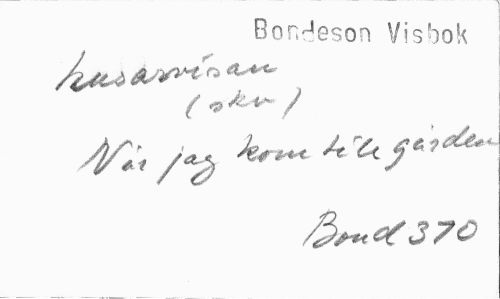 Bondeson Visbok
husarvisan
(skv)
När jag kom till gården
Bond 370